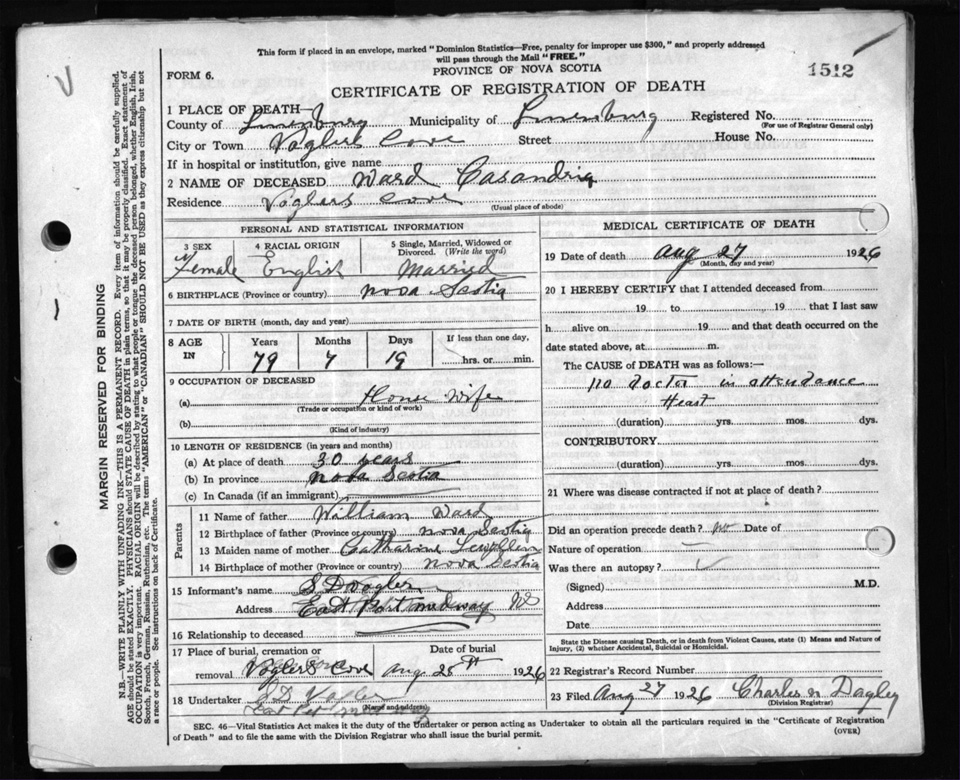 This form if placed in an envelope, marked "Dominion Statistics—Free, penalty for improper use $300," and properly addressed
will pass through the Mail "FREE."
FORM 6.
PROVINCE OF NOVA SCOTIA
1512
CERTIFICATE OF REGISTRATION OF DEATH
1 PLACE OF DEATH—
County of Lunenburg Municipality of Lunenburg Registered No.
(For use of Registrar General only)
City or Town Voglers Cove Street House No.
If in hospital or institution, give name
2 NAME OF DECEASED Ward Casandria
Residence Voglers Cove
(Usual place of abode)
PERSONAL AND STATISTICAL INFORMATION
3 SEX 4 RACIAL ORIGIN 5 Single, Married, Widowed or
Divorced. (Write the word)
Female English Married
6 BIRTHPLACE (Province or country) Nova Scotia
7 DATE OF BIRTH (month, day and year)
8 AGE IN Years Months Days If less than one day,
79 7 19 hrs. or min.
9 OCCUPATION OF DECEASED
(a) House Wife
(Trade or occupation or kind of work)
(b)
(Kind of industry)
10 LENGTH OF RESIDENCE (in years and months)
(a) At place of death 30 years
(b) In province Nova Scotia
(c) In Canada (if an immigrant)
Parents
11 Name of father William Ward
12 Birthplace of father (Province or country) Nova Scotia
13 Maiden name of mother Catharine
14 Birthplace of mother (Province or country) Nova Scotia
15 Informant's name S D Vogler
Address East Port Medway NS
16 Relationship to deceased
17 Place of burial, cremation or removal Date of burial
Voglers Cove Aug 28th 1926
18 Undertaker S D Vogler
(Name and address)
East Port Medway
MEDICAL CERTIFICATE OF DEATH
19 Date of death Aug 27 1926
(Month, day and year)
20 I HEREBY CERTIFY that I attended deceased from
19 to 19 that I last saw
h alive on 19 and that death occurred on
date stated above, at m.
The CAUSE OF DEATH was as follows:—
no doctor in attendance
Heart
(duration) yrs. mos. dys.
CONTRIBUTORY
(duration) yrs. mos. dys.
21 Where was disease contracted if not at place of death?
Did an operation precede death? Date of
Nature of operation
Was there an autopsy?
(Signed) M.D.
Address
Date
State the Disease causing Death, or in death from Violent Causes, state (1) Means and Nature of
Injury, (2) whether Accidental, Suicidal or Homicidal.
22 Registrar's Record Number
23 Filed Aug 27 1926 Charles N Dagley
(Division Registrar)
SEC. 46—Vital Statistics Act makes it the duty of the Undertaker or person acting as Undertaker to obtain all the particulars required in the "Certificate of Registration
of Death" and to file the same with the Division Registrar who shall issue the burial permit.
(OVER)
MARGIN RESERVED FOR BINDING
N.B.—WRITE PLAINLY WITH UNFADING INK—THIS IS A PERMANENT RECORD. Every item of information should be carefully supplied.
AGE should be stated EXACTLY. PHYSICIANS should STATE CAUSE OF DEATH in plain terms, so that it may be properly classified. Exact statement of
OCCUPATION is very important. RACIAL ORIGIN will be described by stating to what people or tongue the deceased person belonged, whether English, Irish,
Scotch, French, German, Russian, Ruthenian, etc. The terms "AMERICAN" or "CANADIAN" SHOULD NOT BE USED as they express citizenship but not
a race or people. See instructions on back of Certificate.